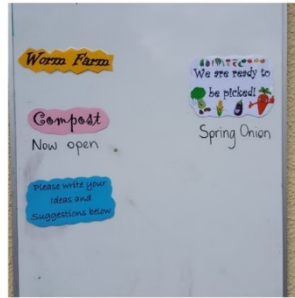 Worm Farm
Compost
Now open
Please write your
Ideas and
Suggestions below
We are ready to
be picked!
Spring Onion